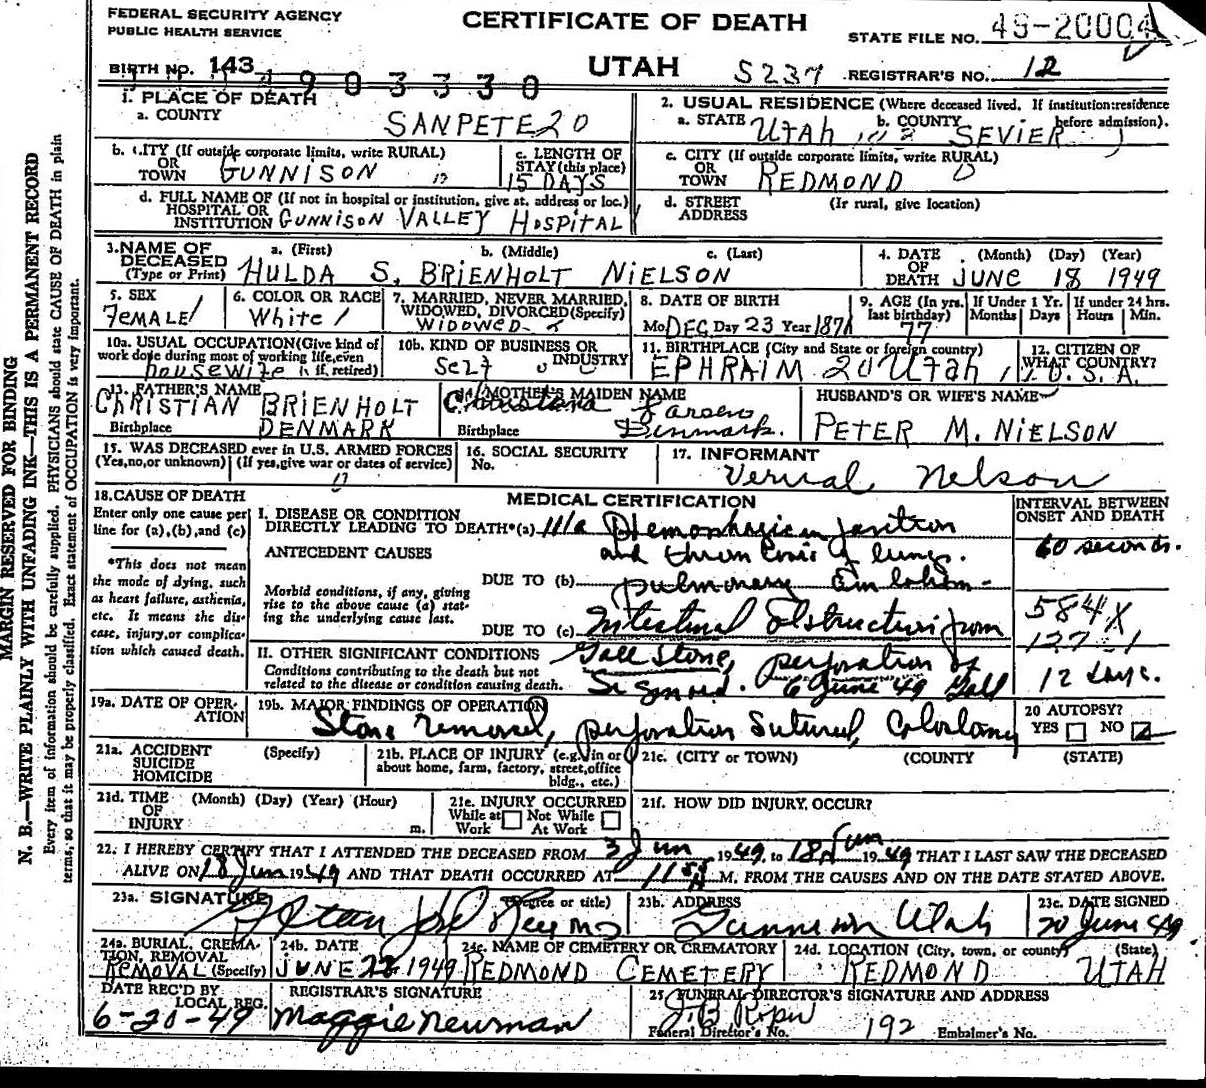 FEDERAL SECURITY AGENCY
PUBLIC HEALTH SERVICE
CERTIFICATE OF DEATH
STATE FILE NO. 49-20004
BIRTH NO. 143
1903330
UTAH S237 REGISTRAR'S NO. 12
1. PLACE OF DEATH
a. COUNTY SANPETE 20
2. USUAL RESIDENCE (Where deceased lived. If institution: residence before admission).
a. STATE UTAH b. COUNTY SEVIER
b. CITY (If outside corporate limits, write RURAL) OR TOWN GUNNISON
c. LENGTH OF STAY (this place) 15 DAYS
c. CITY (If outside corporate limits, write RURAL) OR TOWN REDMOND
d. FULL NAME OF (If not in hospital or institution, give st. address or loc.) HOSPITAL OR INSTITUTION GUNNISON VALLEY HOSPITAL
d. STREET ADDRESS (If rural, give location)
3. NAME OF DECEASED (Type or Print) a. (First) b. (Middle) c. (Last)
HULDA S. BRIENHOLT NIELSON
4. DATE OF DEATH (Month) (Day) (Year) JUNE 18 1949
5. SEX FEMALE
6. COLOR OR RACE White
7. MARRIED, NEVER MARRIED, WIDOWED, DIVORCED (Specify) WIDOWED
8. DATE OF BIRTH Mo DEC Day 23 Year 1871
9. AGE (In yrs. last birthday) 77
If Under 1 Yr. Months Days
If under 24 hrs. Hours Min.
10a. USUAL OCCUPATION (Give kind of work done during most of working life, even if retired) housewife
10b. KIND OF BUSINESS OR INDUSTRY Self
11. BIRTHPLACE (City and State or foreign country) EPHRAIM 20 Utah
12. CITIZEN OF WHAT COUNTRY? U.S.A.
13. FATHER'S NAME CHRISTIAN BRIENHOLT
Birthplace DENMARK
14. MOTHER'S MAIDEN NAME Larsen
Birthplace Denmark.
HUSBAND'S OR WIFE'S NAME
PETER M. NIELSON
15. WAS DECEASED ever in U.S. ARMED FORCES (Yes, no, or unknown) (If yes, give war or dates of service)
16. SOCIAL SECURITY No.
17. INFORMANT Vernal Nelson
18. CAUSE OF DEATH
Enter only one cause per line for (a), (b), and (c)
*This does not mean the mode of dying, such as heart failure, asthenia, etc. It means the disease, injury, or complication which caused death.
MEDICAL CERTIFICATION
INTERVAL BETWEEN ONSET AND DEATH
I. DISEASE OR CONDITION
DIRECTLY LEADING TO DEATH* (a) 111a Hemorrhagic infarction
ANTECEDENT CAUSES and thrombosis of lungs.
60 seconds.
Morbid conditions, if any, giving rise to the above cause (a) stating the underlying cause last.
DUE TO (b) pulmonary Embolism
DUE TO (c) Intestinal Obstruction from
584X
127
II. OTHER SIGNIFICANT CONDITIONS Gall Stone, perforation of
Conditions contributing to the death but not related to the disease or condition causing death. Sigmoid. 6 June 49 Gall
12 days.
19a. DATE OF OPERATION
19b. MAJOR FINDINGS OF OPERATION
Stone removed, perforation Sutured, Colostomy
20 AUTOPSY? YES NO
21a. ACCIDENT SUICIDE HOMICIDE (Specify)
21b. PLACE OF INJURY (e.g., in or about home, farm, factory, street, office bldg., etc.)
21c. (CITY or TOWN) (COUNTY) (STATE)
21d. TIME OF INJURY (Month) (Day) (Year) (Hour) m.
21e. INJURY OCCURRED While at Work Not While At Work
21f. HOW DID INJURY OCCUR?
22. I HEREBY CERTIFY THAT I ATTENDED THE DECEASED FROM 3 Jun 1949, to 18 Jun 1949 THAT I LAST SAW THE DECEASED
ALIVE ON 18 Jun 1949 AND THAT DEATH OCCURRED AT 11 55 A M. FROM THE CAUSES AND ON THE DATE STATED ABOVE.
23a. SIGNATURE (Degree or title)
23b. ADDRESS Gunnison Utah
23c. DATE SIGNED 20 June 49
24a. BURIAL, CREMATION, REMOVAL (Specify) REMOVAL
24b. DATE JUNE 22 1949
24c. NAME OF CEMETERY OR CREMATORY REDMOND CEMETERY
24d. LOCATION (City, town, or county) (State) REDMOND UTAH
DATE REC'D BY LOCAL REG. 6-20-49
REGISTRAR'S SIGNATURE Maggie Newman
25. FUNERAL DIRECTOR'S SIGNATURE AND ADDRESS
Funeral Director's No. 192 Embalmer's No.
MARGIN RESERVED FOR BINDING
N. B.—WRITE PLAINLY WITH UNFADING INK—THIS IS A PERMANENT RECORD
Every item of information should be carefully supplied. PHYSICIANS should state CAUSE OF DEATH in plain
terms, so that it may be properly classified. Exact statement of OCCUPATION is very important.